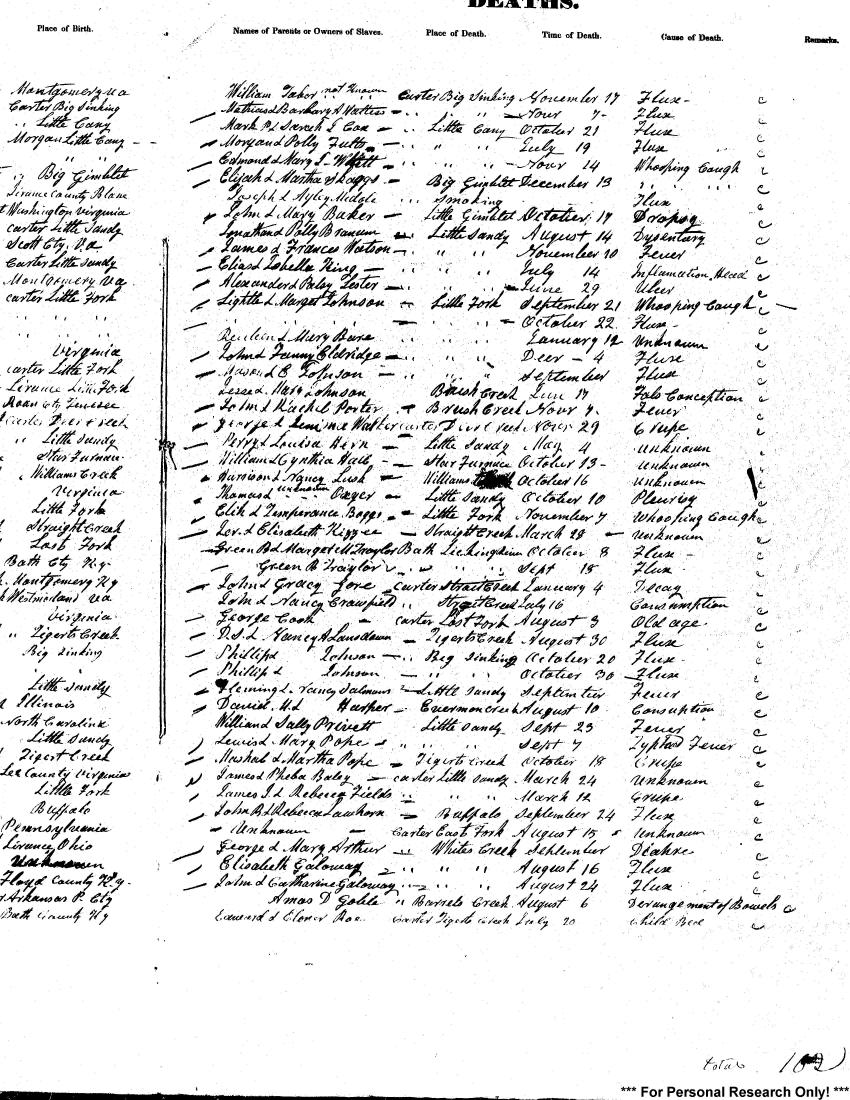 DEATHS.
Place of Birth. Names of Parents or Owners of Slaves. Place of Death. Time of Death. Cause of Death. Remarks.
Montgomery Va William Tabor not Known Carter Big Sinking November 17 Flux
Carter Big Sinking Mathias & Barbary A Mathers " " " Novr 7 Flux
" Little Cany Mark P & Sarah J Cox " Little Cany October 21 Flux
Morgan Little Cany Morgan & Polly " " " July 19 Flux
" " Edmond & Mary L. " " " Novr 14 Whooping Cough
" Big Gimblet Elijah & Martha Skaggs Big Gimblet December 13 " "
County Joseph & smoking Flux
Washington Virginia John & Mary Baker " Little Gimblet October 19 Dropsy
Carter Little Sandy Jonathan & Polly Branum " Little Sandy August 14 Dysentary
Scott Cty, Va James & Frances Watson " " " November 10 Fever
Carter Little Sandy Elias & Isbella King " " " July 14 Inflamation Head
Montgomery Va Alexander & Lester " " " June 29 Ulcer
Carter Little Fork & Marget Johnson Little Fork September 21 Whooping Cough
" " " " " October 22 Flux
" " Reuben & Mary January 12 Unknown
Virginia John & Fanny Eldridge " " " Decr 4 Flux
Carter Little Fork Mason & E Johnson " " " September Flux
Little Fork Jesse & Mary Johnson Brush Creek Jun 17 Fals Conception
Roan Cty Tenesse John & Rachel Porter " Brush Creek Novr 7 Fever
Carter Deer Creek George & Walker Carter Creek Novr 29 Crupe
" Little Sandy Perry & Louisa Horn " Little Sandy May 4 Unknown
" Star Furnace William & Cynthia Hall " Star Furnace October 13 Unknown
" Williams Creek Harrison & Nancy Lusk " Williams October 16 Unknown
Virginia Thomas & unknown " Little Sandy October 10 Pleurisy
Little Fork & Temperance Boggs " Little Fork November 7 Whooping Cough
Straight Creek & Elisabeth Kizzee Straight Creek March 28 Unknown
Lost Fork Green B & Margaret M Traylor Bath October 8 Flux
Bath Cty Ky. Green B Traylor " " Sept 15 Flux
Montgomery Ky John & Gracy Carter Strait Creek January 4 Decay
Westmorland Va John & Nancy Crawfield " Strait Creek July 16 Consumption
Virginia George Cook Carter Lost Fork August 3 Old age
" Tigerts Creek D.S. & Nancy A Lansdown Tigerts Creek August 30 Flux
Big Sinking Phillip & Johnson " Big Sinking October 20 Flux
Phillip & Johnson " " " October 30 Flux
Little Sandy Fleming & Nancy Little Sandy September Fever
Illinois David. M. & Harper August 10 Consuption
North Carolina William & Sally Privett Little Sandy Sept 23 Fever
Little Sandy Lewis & Mary Pope " " " Sept 7 Typhod Fever
Tigert Creek Mashal & Martha Pope Tigerts Creek October 18 Crupe
Lee County Virginia James & Pheba Baley Carter Little Sandy March 24 Unknown
Little Fork James J & Rebecca Fields " " " March 12 Crupe
Buffalo John R & Rebecca Lawhorn Buffalo September 24 Flux
Pennsylvania Unknown Carter East Fork August 15 Unknown
Ohio George & Mary Arthur " Whites Creek September
Unknown Elisabeth Galoway " " " August 16 Flux
Floyd County Ky. John & Catharine Galoway " " August 24 Flux
Arkansas P. Cty Amos D Goble " Barrels Creek August 6 Derangement of Bowels
Bath County Ky Edward & Elenor Roe Carter Tigerts Creek July 20 Child Bed
total 102
*** For Personal Research Only! ***